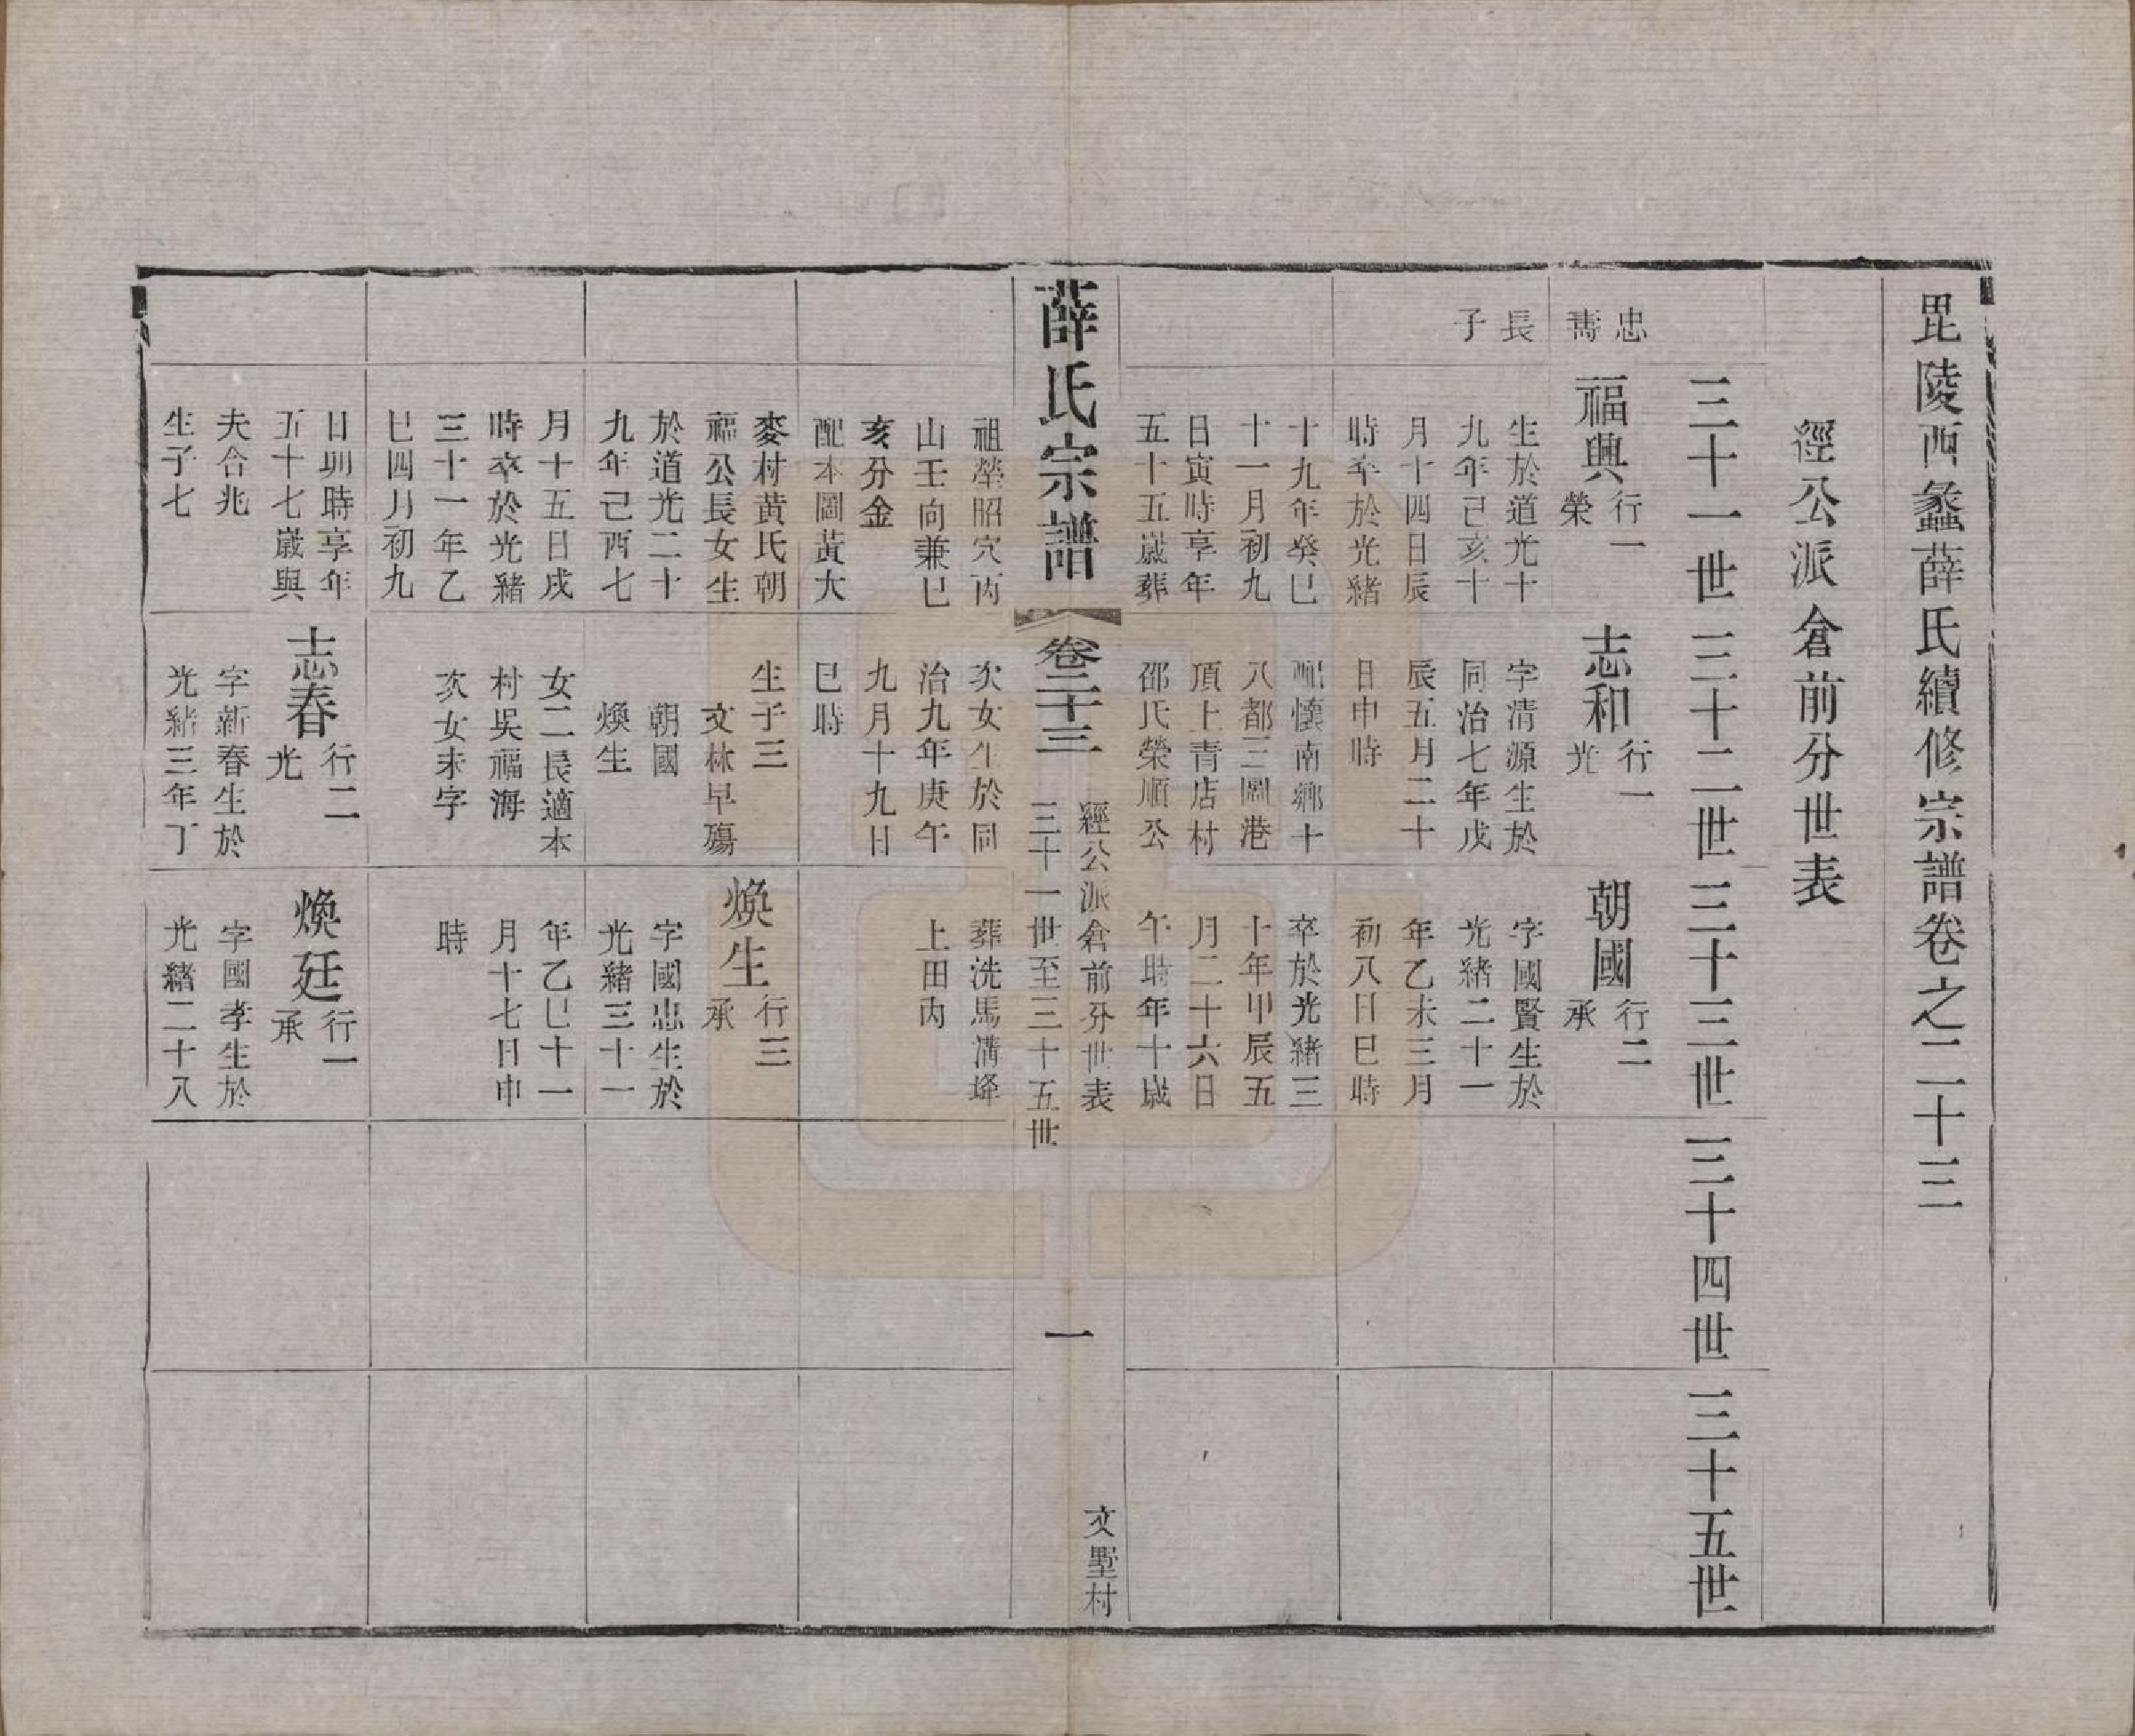 毘陵西蠡薛氏續修宗譜卷之二十三
經公派倉前分世表
三十一世
三十二世
三十三世
三十四世
三十五世
忠
壽
長
子
福興
行一
榮
生於道光十
九年己亥十
月十四日辰
時卒於光緒
十九年癸巳
十一月初九
日寅時享年
五十五歲葬
志和
行一
光
字清源生於
同治七年戊
辰五月二十
日申時
配懷南鄉十
八都三圖港
頂上青店村
邵氏榮順公
朝國
行二
承
字國賢生於
光緒二十一
年乙未三月
初八日巳時
卒於光緒三
十年甲辰五
月二十六日
午時年十歲
薛氏宗譜
卷二十三
經公派倉前分世表
三十一世至三十五世
一
文墅村
祖塋昭穴丙
山壬向兼巳
亥分金
配本圖黃大
麥村黃氏朝
福公長女生
於道光二十
九年己酉七
月十五日戌
時卒於光緒
三十一年乙
巳四月初九
日丑時享年
五十七歲與
夫合兆
生子七
次女生於同
治九年庚午
九月十九日
巳時
生子三
文林早殤
朝國
煥生
女二長適本
村吳福海
次女未字
志春
行二
光
字新春生於
光緒三年丁
葬洗馬溝塋
上田內
煥生
行三
承
字國忠生於
光緒三十一
年乙巳十一
月十七日申
時
煥廷
行一
承
字國孝生於
光緒二十八